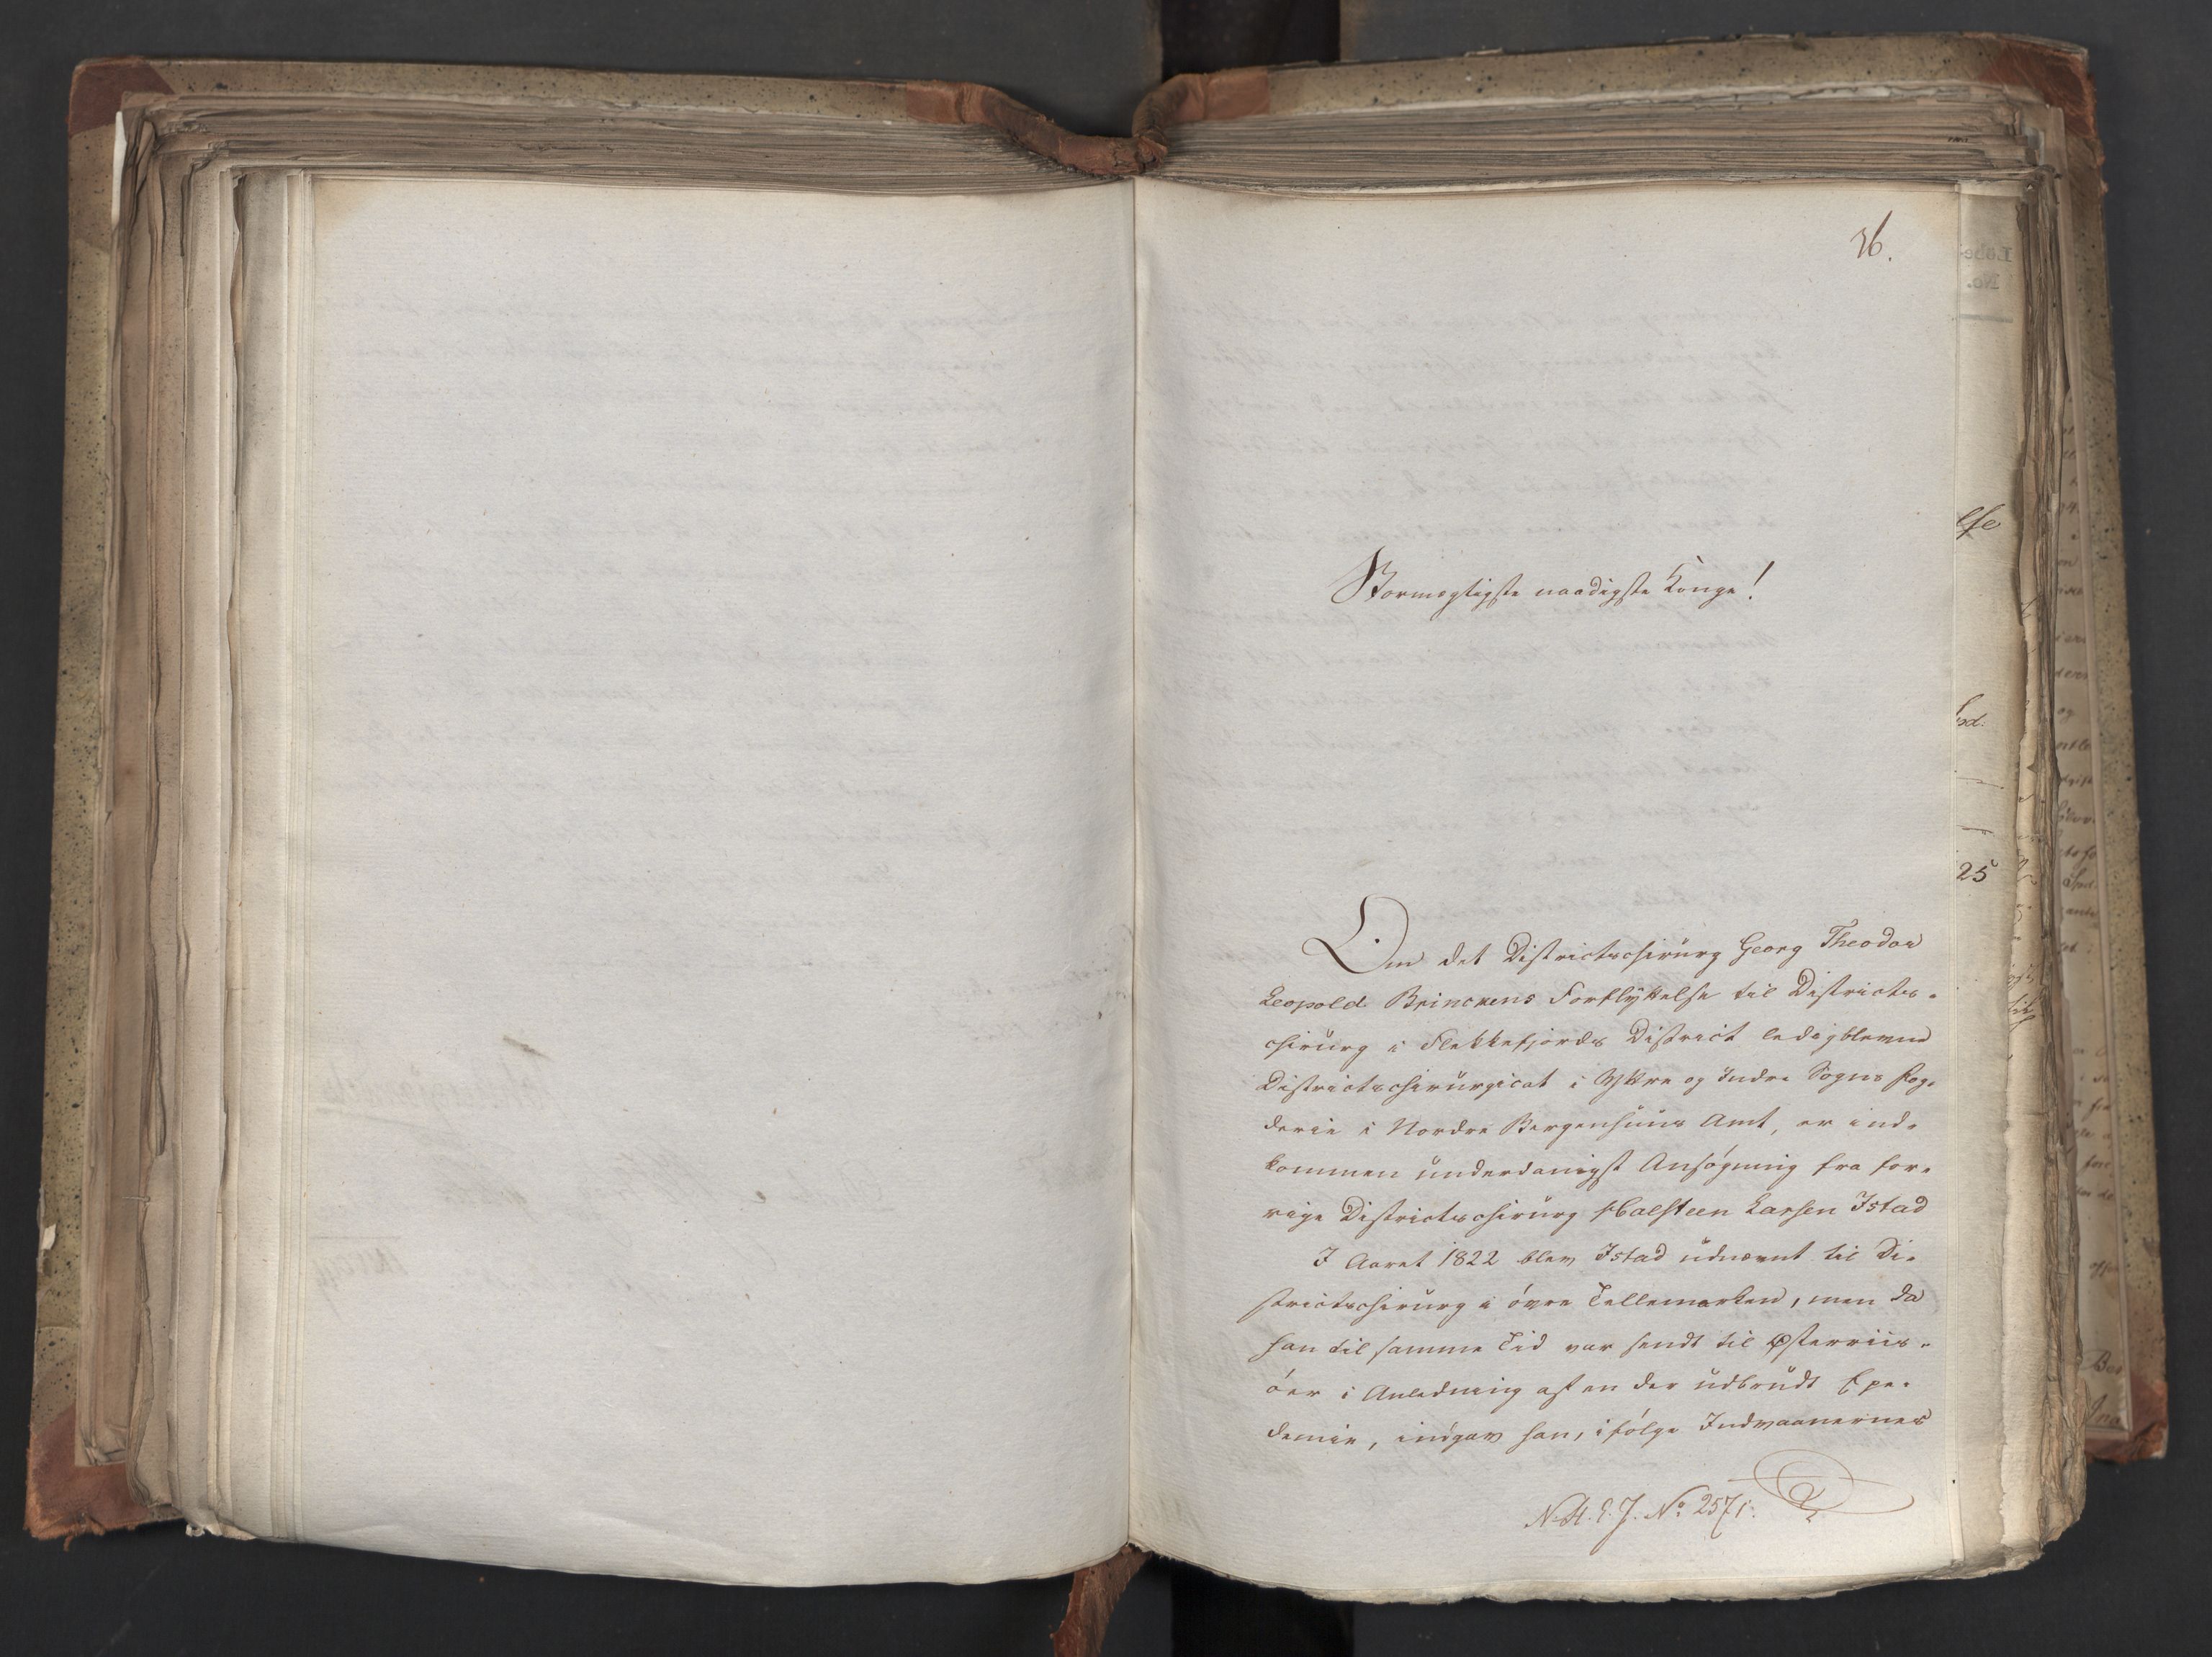 26.
Stormægtigste naadigste Konge!
Om det Districtschirurg Georg Theodor
Leopold Brinckens Forflyttelse til Districts-
chirurg i Flekkefjords District ledigblevne
Districtschirurgicat i Yttre og Indre Sogns Fog-
derie i Nordre Bergenhuus Amt, er ind-
kommen underdanigst Ansøgning fra for-
rige Districtschirurg Halsteen Larsen Istad
I Aaret 1822 blev Istad udnævnt til Di-
strictschirurg i øvre Tellemarken, men da
han til samme Tid var sendt til Østerriis-
øer i Anledning af en der udbrudt Epe-
demie, indgav han, ifølge Indvaanernes
N. A. E. J. No 2571.
Løbe-
No.
else
25